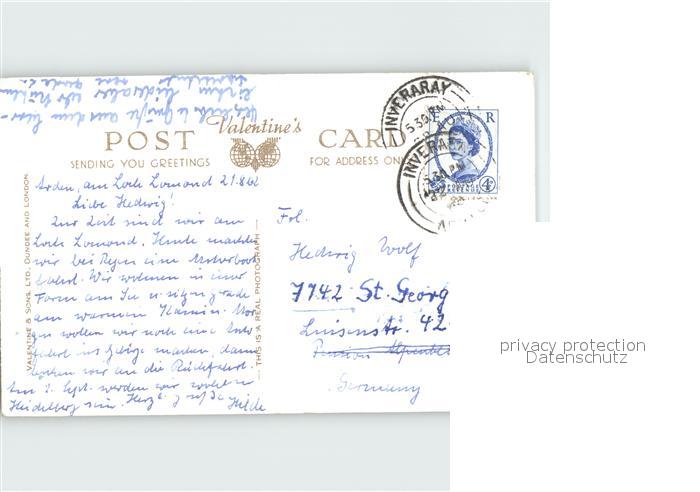 INVERARAY
5.30 PM
E R
4D
INVERARAY
5.30 PM
Herzliche Grüße aus dem
POST Valentine's CARD
SENDING YOU GREETINGS
FOR ADDRESS ONLY
Arden, am Loch Lomond 21.8.62
Liebe Hedwig!
Zur Zeit sind wir am
Loch Lomond. Heute machten
wir bei Regen eine Motorboot
fahrt. Wir wohnen in einer
Farm am See u. sitzen grade
am warmen Kamin. Mor-
gen wollen wir noch eine Auto
fahrt ins Gebirge machen, dann
wir an die Rückfahrt.
Am 1. Sept. werden wir wohl in
Heidelberg sein. Herzl. Grüße
Hilde
VALENTINE & SONS, LTD., DUNDEE AND LONDON
THIS IS A REAL PHOTOGRAPH
Frl.
Hedwig Wolf
7742 St. Georg
Luisenstr. 42
Pension
Germany
privacy protection
Datenschutz